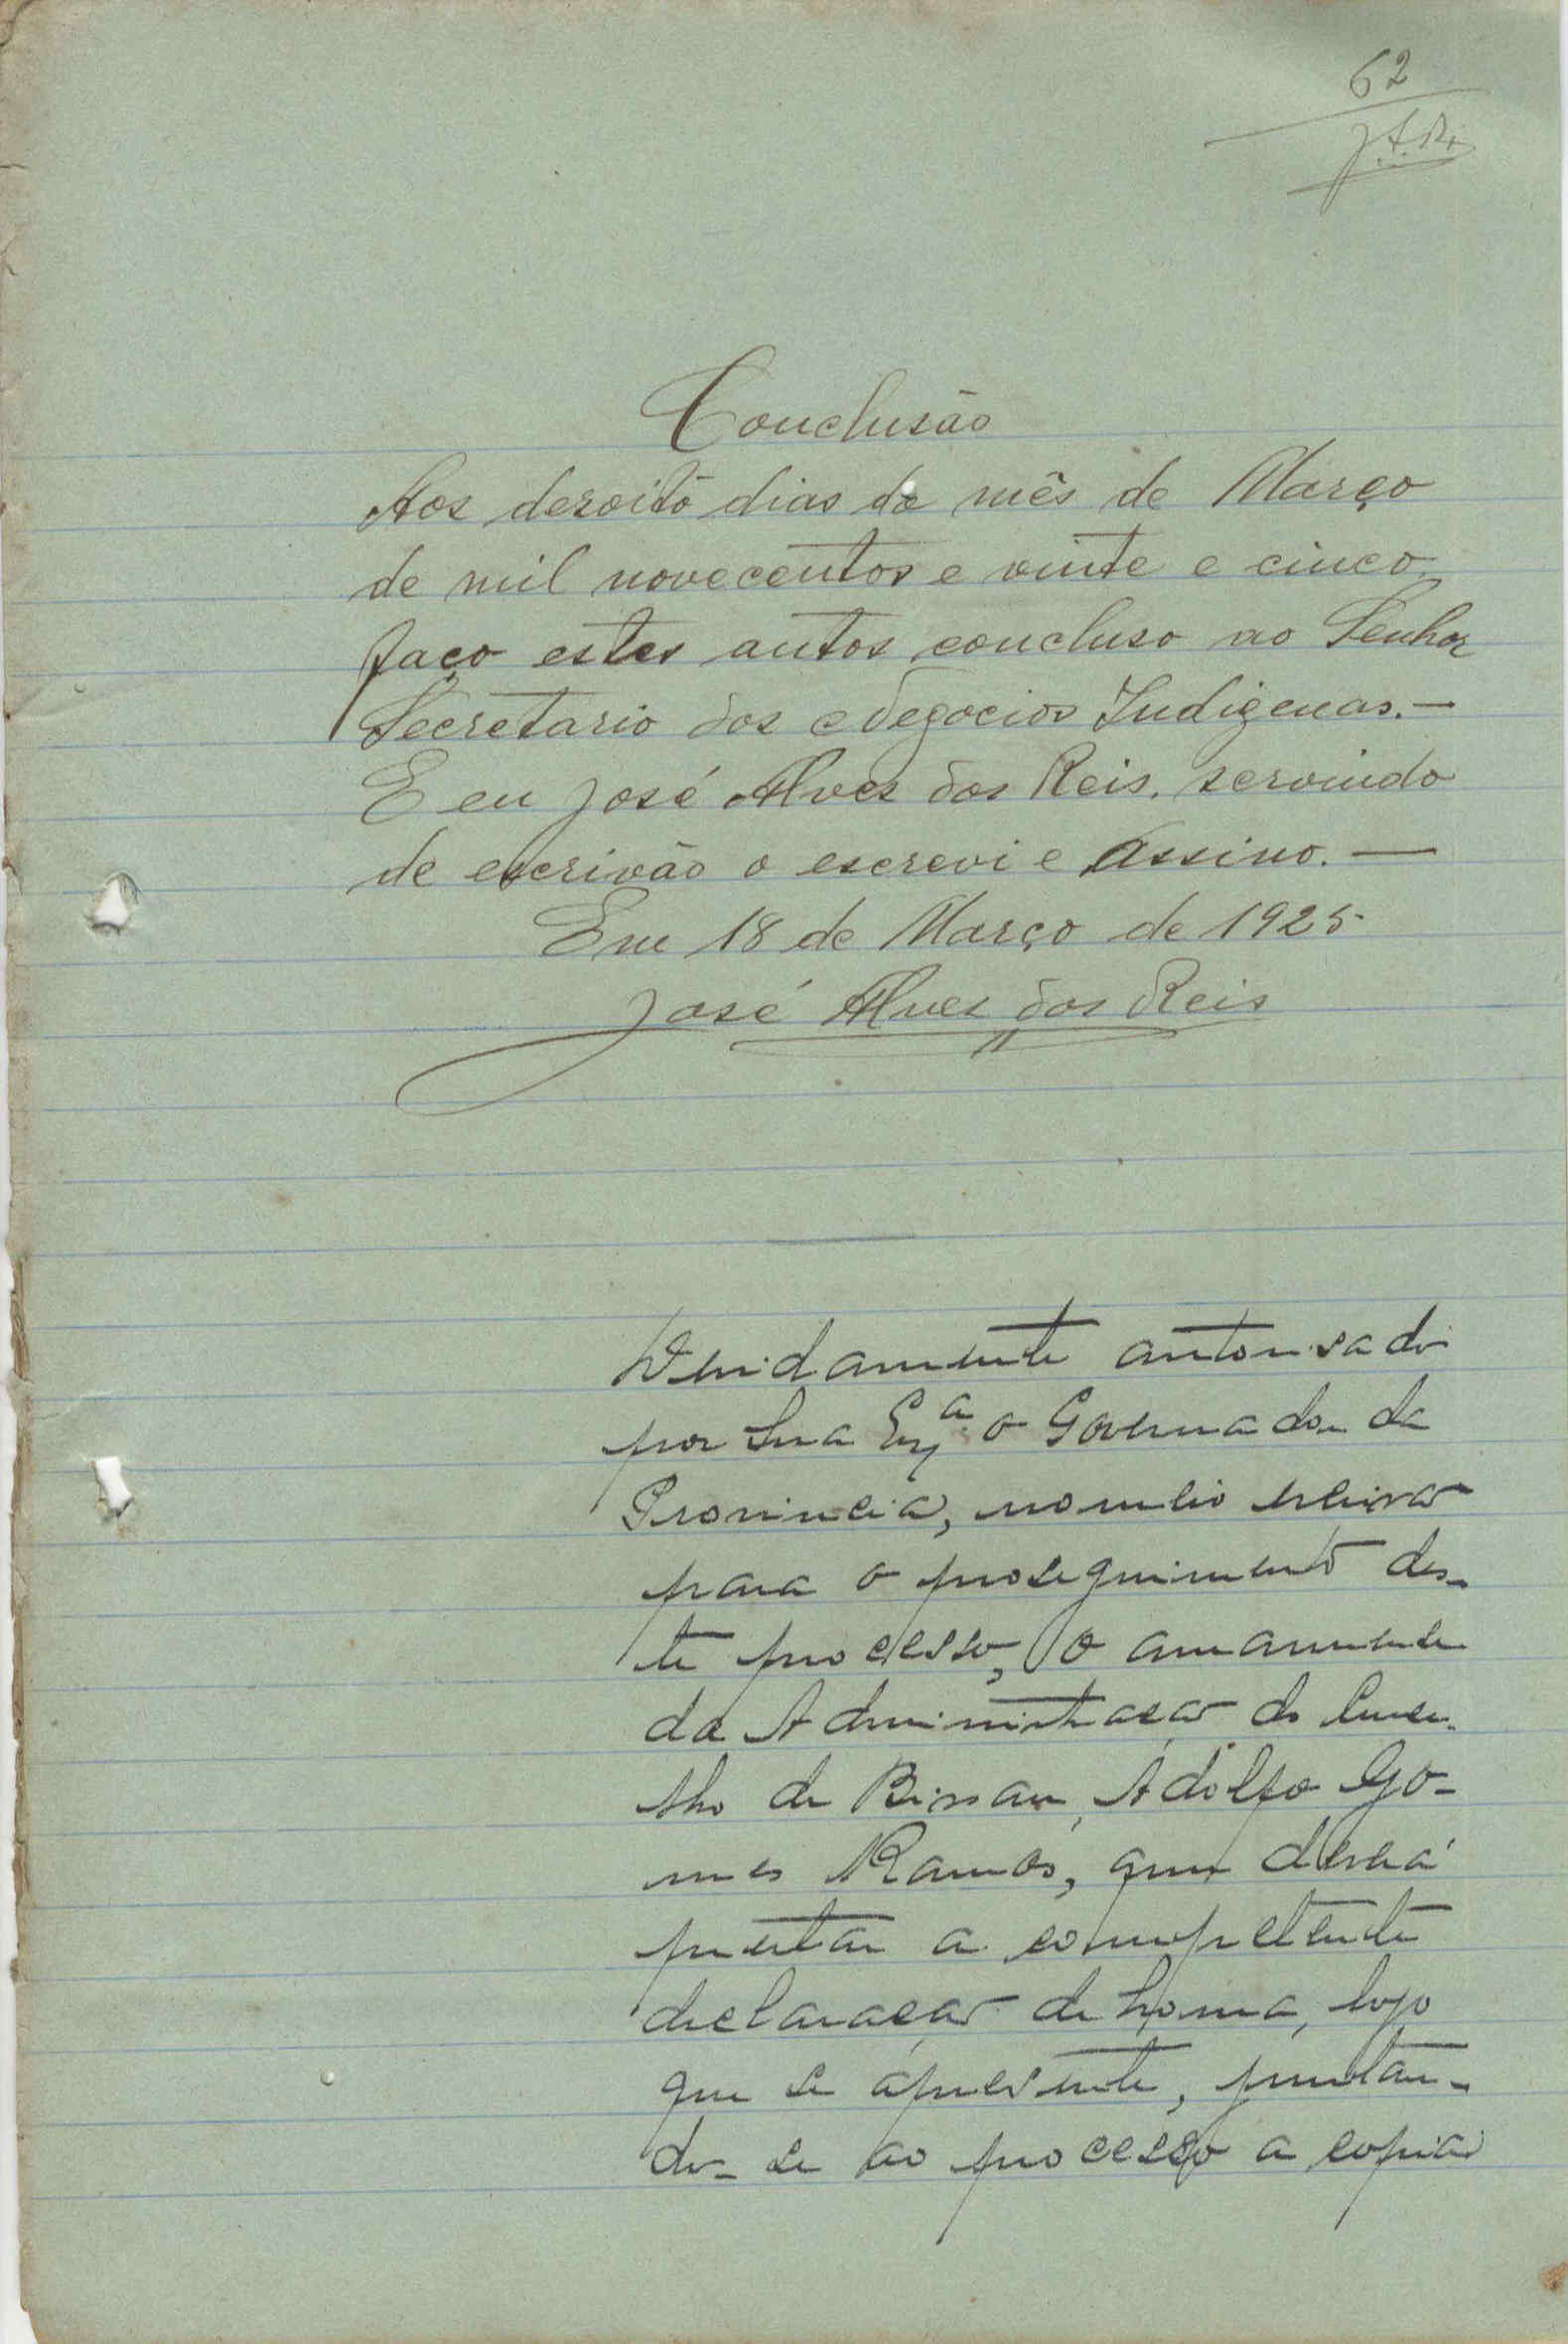 62
J.A.R.
Conclusão
Aos desoito dias do mês de Março
de mil novecentos e vinte e cinco
faço estes autos concluso ao Senhor
Secretario dos Negocios Indigenas.—
E eu José Alves dos Reis, servindo
de escrivão o escrevi e assino.—
Em 18 de Março de 1925
José Alves dos Reis
Devidamente autorisado
por Sua Exª o Governador da
Provincia, nomeio escrivão
para o proseguimento des-
te processo, o amanuense
da Administração do Conce-
lho de Bissau, Adolfo Go-
mes Ramos, que deverá
prestar a competente
declaração de honra, logo
que se apresente, juntan-
do-se ao processo a copia